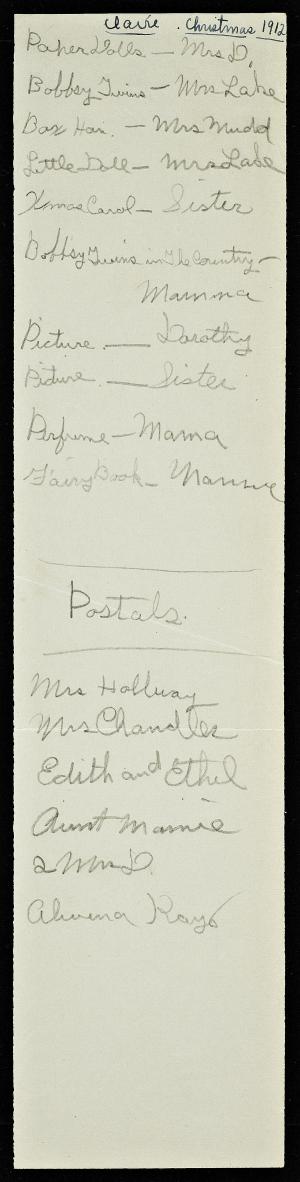 Claire. Christmas 1912
Paper Dolls — Mrs D.
Bobbsy Twins — Mrs Lake
Box Han. — Mrs Mudd
Little Doll — Mrs Lake
Xmas Carol — Sister
Bobbsy Twins in The Country —
Mamma
Picture. — Dorothy
Picture. — Sister
Perfume — Mama
Fairy Book —
Postals.
Mrs Holloway
Mrs Chandler
Edith and Ethel
Aunt Mamie
2 Mrs D.
Kays